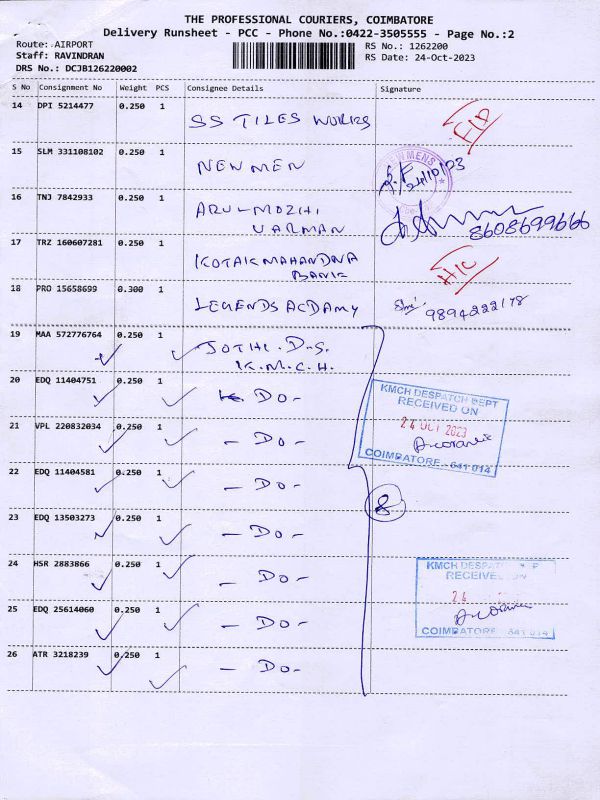 THE PROFESSIONAL COURIERS, COIMBATORE
Delivery Runsheet - PCC - Phone No.:0422-3505555 - Page No.:2
Route: AIRPORT
RS No.: 1262200
Staff: RAVINDRAN
RS Date: 24-Oct-2023
DRS No.: DCJB126220002
S No Consignment No Weight PCS Consignee Details Signature
14 DPI 5214477 0.250 1 SS TILES WORKS
15 SLM 331108102 0.250 1 NEWMEN 24/10/23
16 TNJ 7842933 0.250 1 ARUL-MOZHI
VARMAN 8608699666
17 TRZ 160607281 0.250 1 KOTAK MAHANDRA
BANK H/C
18 PRO 15658699 0.300 1 LEGENDS ACDAMY 9894222178
19 MAA 572776764 0.250 1 JOTHI. D.S.
K.M.C.H.
20 EDQ 11404751 0.250 1 DO-
21 VPL 220832034 0.250 1 - DO-
22 EDQ 11404581 0.250 1 - DO-
23 EDQ 13503273 0.250 1 - DO-
24 HSR 2883866 0.250 1 - DO-
25 EDQ 25614060 0.250 1 - DO-
26 ATR 3218239 0.250 1 - DO-
KMCH DESPATCH DEPT
RECEIVED ON
24 OCT 2023
COIMBATORE - 641 014
8
KMCH DESPATCH
RECEIVED ON
24
COIMBATORE 641 014